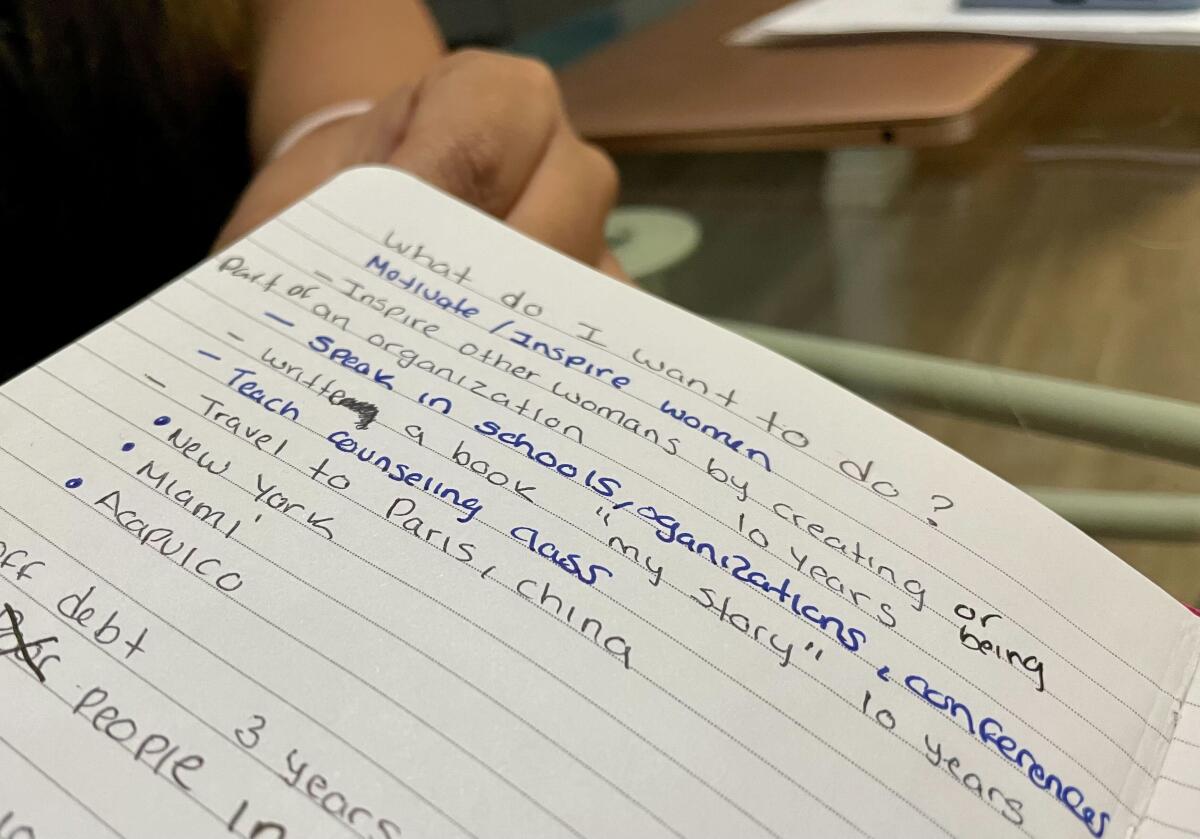 What do I want to do?
Motivate / Inspire women
- Inspire other womans by creating or being
Part of an organization 10 years
- Speak in schools, oganizations, conferences
- written a book "my story" 10 years
- Teach counseling class
- Travel to Paris, china
• New York
• Miami
• Acapulco
off debt 3 years
people in